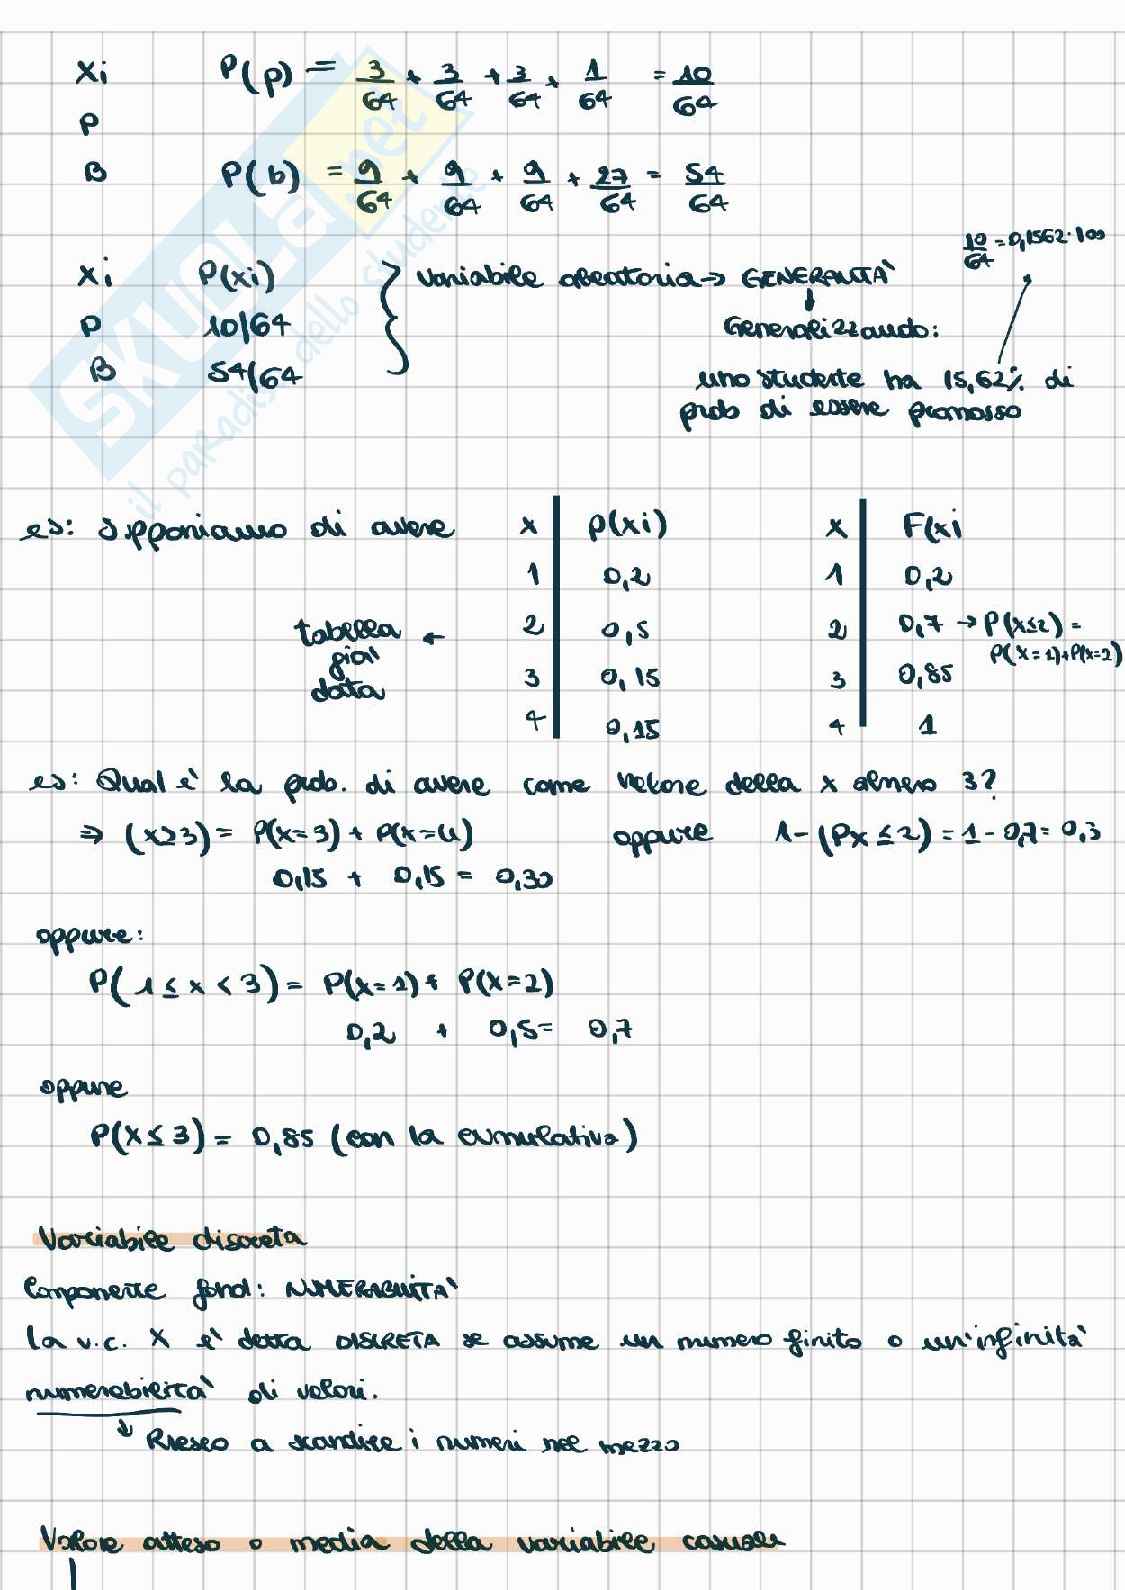 xi P(p) = 3/64 + 3/64 + 3/64 + 1/64 = 10/64
P
B P(b) = 9/64 + 9/64 + 9/64 + 27/64 = 54/64
10/64 = 0,1562·100
xi P(xi) } variabile aleatoria → GENERALITÀ
P 10/64 Generalizzando:
B 54/64
uno studente ha 15,62% di
prob di essere promosso
SKUOLA.net
il paradiso dello studente
es: supponiamo di avere x p(xi) x F(xi
1 0,2 1 0,2
tabella ← 2 0,5 2 0,7 → P(x≤2) =
P(x=1)+P(x=2)
già
3 0,15 3 0,85
data
4 0,15 4 1
es: Qual è la prob. di avere come valore della x almeno 3?
⇒ (x≥3) = P(x=3) + P(x=4) oppure 1-(Px≤2) = 1-0,7 = 0,3
0,15 + 0,15 = 0,30
oppure:
P(1 ≤ x < 3) = P(x=1) + P(x=2)
0,2 + 0,5 = 0,7
oppure
P(x≤3) = 0,85 (con la cumulativa)
Variabile discreta
Componente fond: NUMERABILITÀ
la v.c. X è detta DISCRETA se assume un numero finito o un'infinità
numerabilità di valori.
↓ Riesco a scandire i numeri nel mezzo
Valore atteso o media della variabile casuale